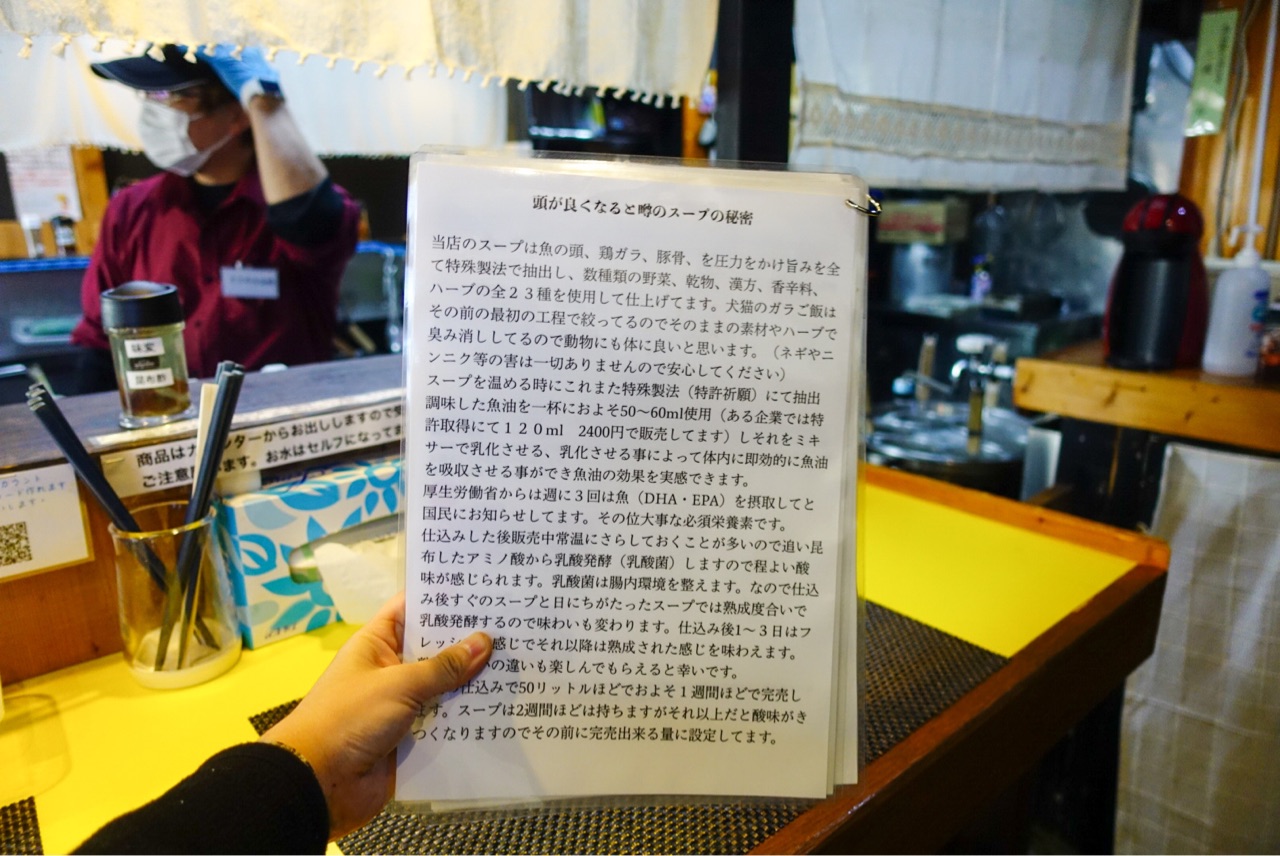 頭が良くなると噂のスープの秘密
当店のスープは魚の頭、鶏ガラ、豚骨、を圧力をかけ旨みを全
て特殊製法で抽出し、数種類の野菜、乾物、漢方、香辛料、
ハーブの全２３種を使用して仕上げてます。犬猫のガラご飯は
その前の最初の工程で絞ってるのでそのままの素材やハーブで
臭み消ししてるので動物にも体に良いと思います。（ネギやニ
ンニク等の害は一切ありませんので安心してください）
スープを温める時にこれまた特殊製法（特許祈願）にて抽出
調味した魚油を一杯におよそ50～60ml使用（ある企業では特
許取得にて１２０ml　2400円で販売してます）しそれをミキ
サーで乳化させる、乳化させる事によって体内に即効的に魚油
を吸収させる事ができ魚油の効果を実感できます。
厚生労働省からは週に３回は魚（DHA・EPA）を摂取してと
国民にお知らせしてます。その位大事な必須栄養素です。
仕込みした後販売中常温にさらしておくことが多いので追い昆
布したアミノ酸から乳酸発酵（乳酸菌）しますので程よい酸
味が感じられます。乳酸菌は腸内環境を整えます。なので仕込
み後すぐのスープと日にちがたったスープでは熟成度合いで
乳酸発酵するので味わいも変わります。仕込み後1～３日はフ
レッシ 感じでそれ以降は熟成された感じを味わえます。
の違いも楽しんでもらえると幸いです。
仕込みで50リットルほどでおよそ１週間ほどで完売し
ます。スープは2週間ほどは持ちますがそれ以上だと酸味がき
つくなりますのでその前に完売出来る量に設定してます。
味変
昆布酢
商品はカ ンターからお出ししますので受
ご注意 ます。お水はセルフになってま